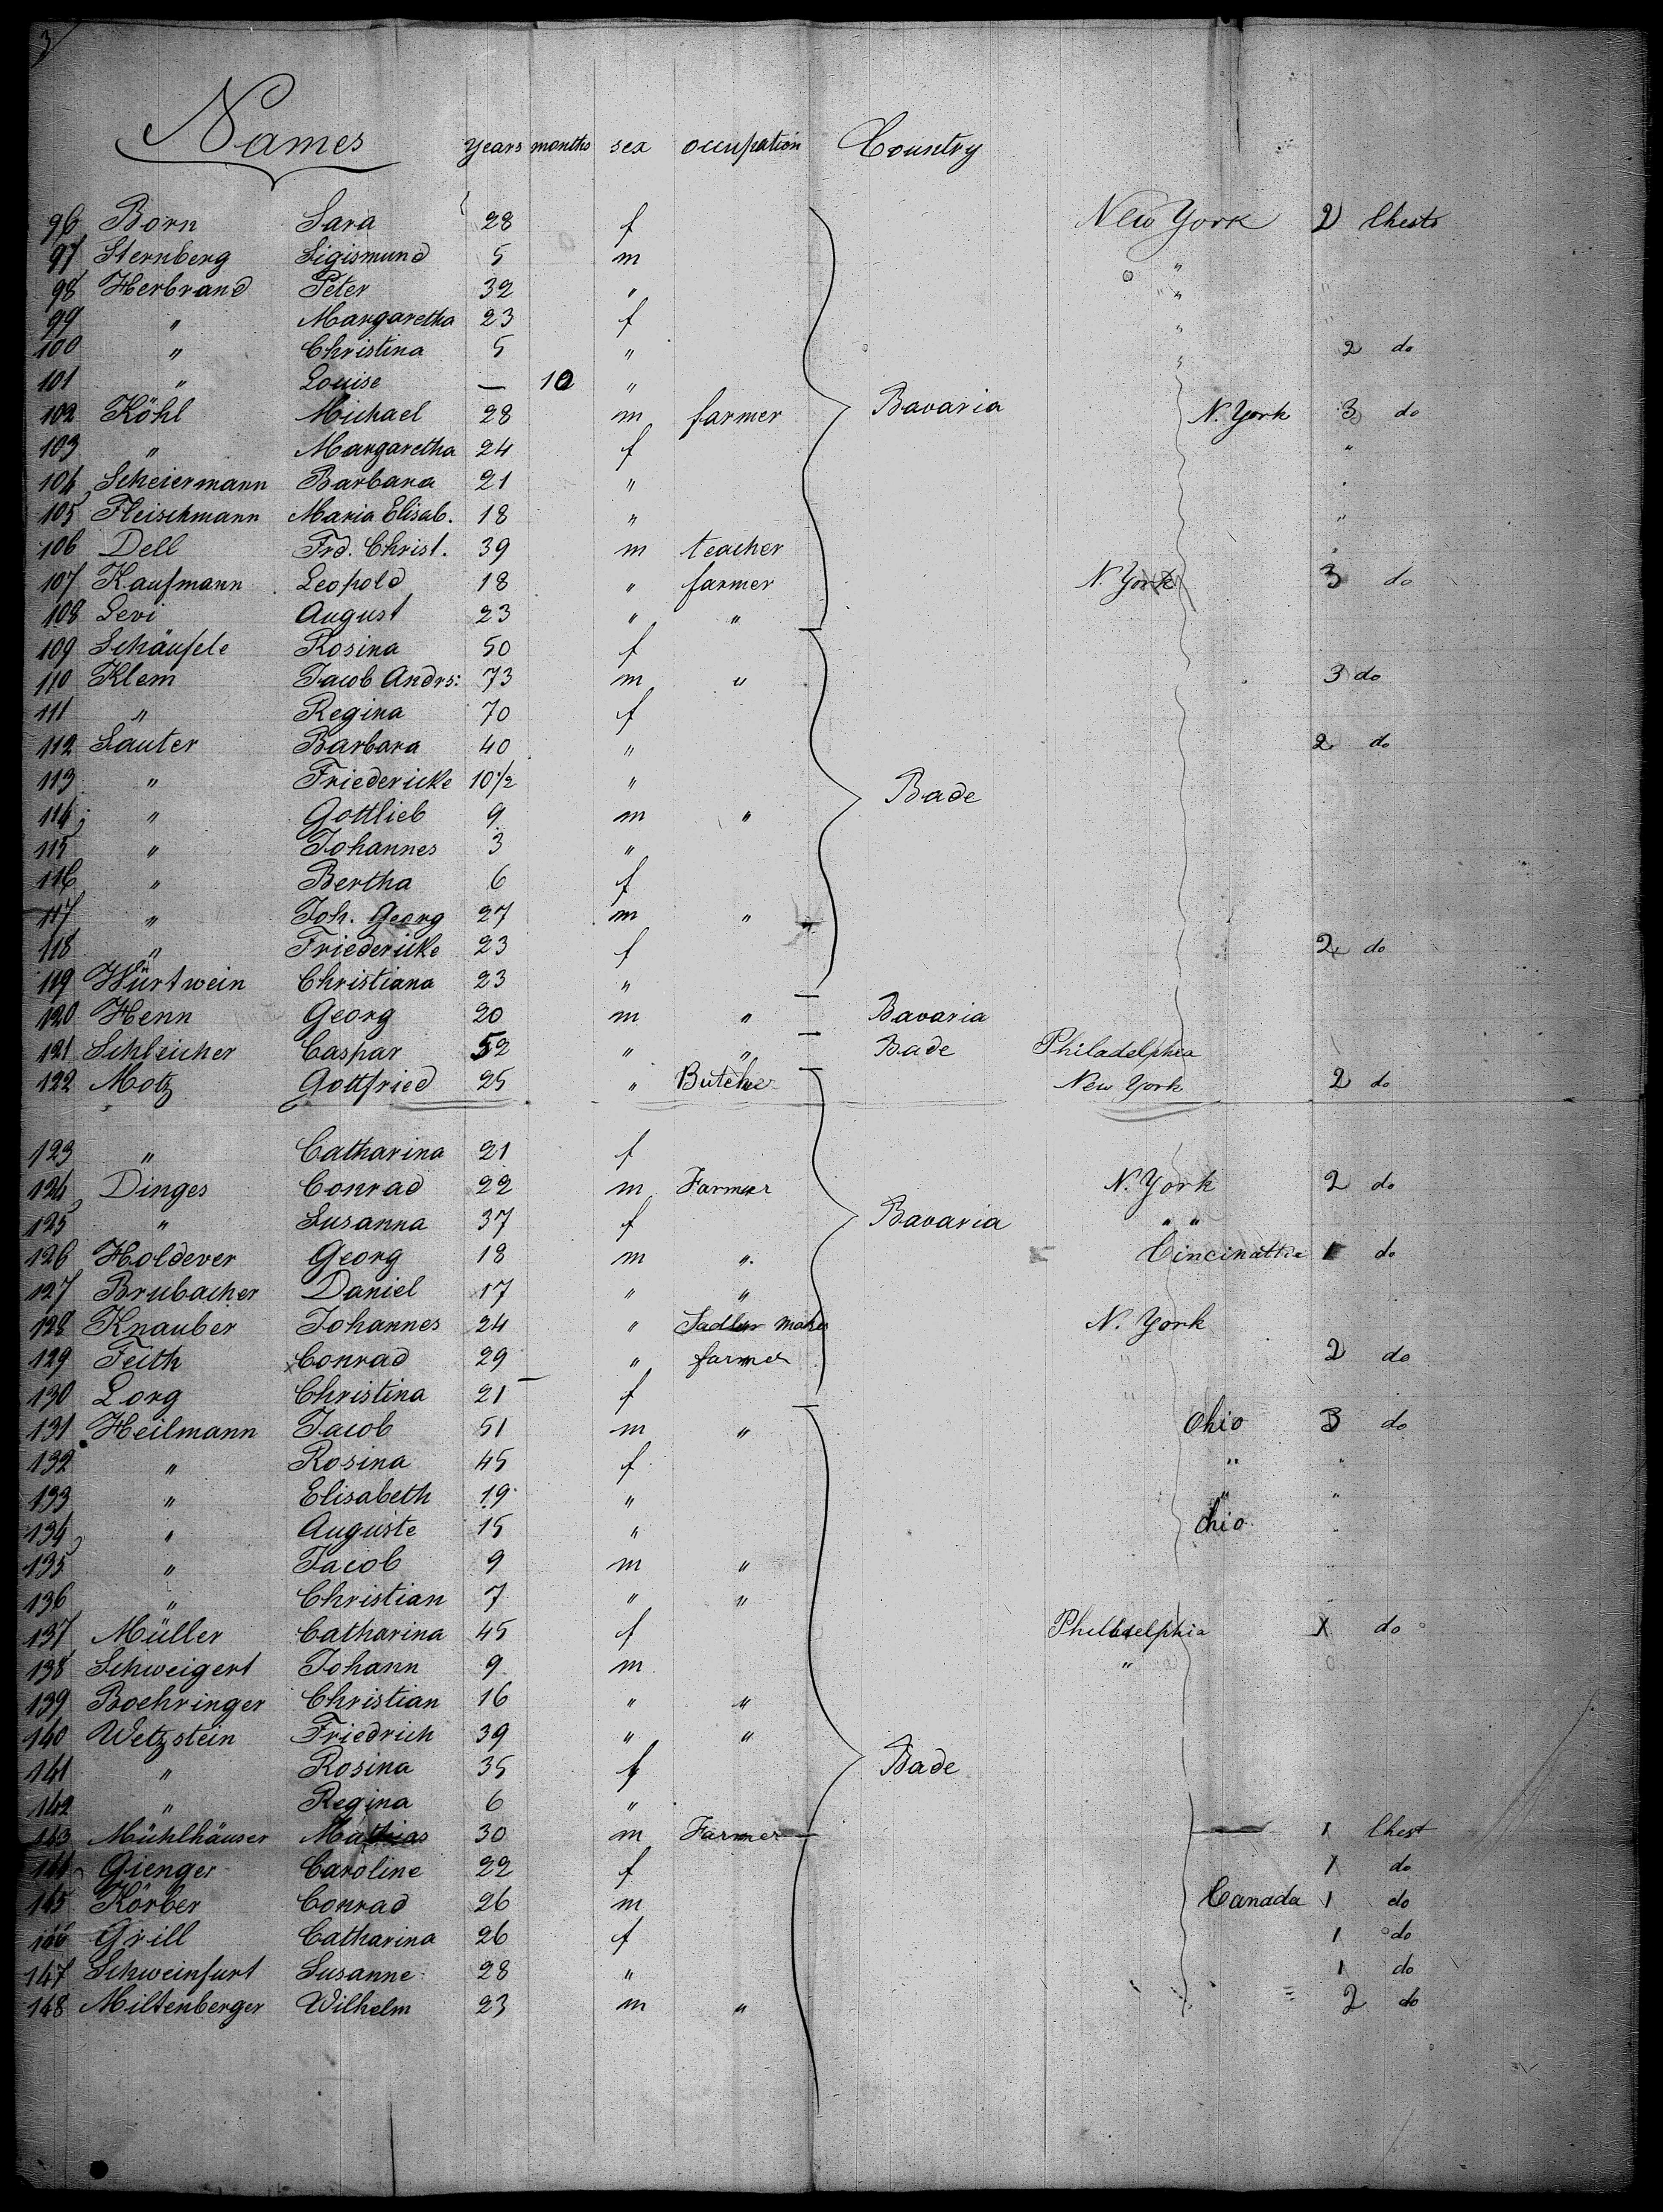 3
Names years months sex occupation Country
96 Born Sara 28 f New York 2 Chests
97 Sternberg Sigismund 5 m "
98 Herbrand Peter 32 " "
99 " Margaretha 23 f "
100 " Christina 5 " " 2 do
101 " Louise — 10 "
102 Köhl Michael 28 m farmer Bavaria N. York 3 do
103 " Margaretha 24 f "
104 Scheiermann Barbara 21 " "
105 Fleischmann Maria Elisab. 18 " "
106 Dell Frd. Christ. 39 m teacher "
107 Kaufmann Leopold 18 " farmer N. York 3 do
108 Levi August 23 " "
109 Schäufele Rosina 50 f
110 Klem Jacob Andrs: 73 m " 3 do
111 " Regina 70 f
112 Sauter Barbara 40 " 2 do
113 " Friedericke 10 1/2 "
114 " Gottlieb 9 m " Bade
115 " Johannes 3 "
116 " Bertha 6 f
117 " Joh. Georg 27 m "
118 " Friedericke 23 f 2 do
119 Würtwein Christiana 23 "
120 Henn Georg 20 m " Bavaria
121 Schleicher Caspar 52 " " Bade Philadelphia
122 Motz Gottfried 25 " Butcher New York 2 do
123 " Catharina 21 f
124 Dinges Conrad 22 m Farmer N. York 2 do
125 " Susanna 37 f Bavaria " "
126 Holdever Georg 18 m " Cincinattie 1 do
127 Brubacher Daniel 17 " "
128 Knauber Johannes 24 " Sadler maker N. York
129 Feith Conrad 29 " farmer " 2 do
130 Lorg Christina 21 f "
131 Heilmann Jacob 51 m " Ohio 3 do
132 " Rosina 45 f " "
133 " Elisabeth 19 " " "
134 " Auguste 15 " Ohio "
135 " Jacob 9 m "
136 " Christian 7 " "
137 Müller Catharina 45 f Philadelphia 1 do
138 Schweigert Johann 9 m "
139 Boehringer Christian 16 " "
140 Wetzstein Friedrich 39 " "
141 " Rosina 35 f Bade
142 " Regina 6 "
143 Mühlhäuser Mathias 30 m Farmer — 1 Chest
144 Gienger Caroline 22 f 1 do
145 Körber Conrad 26 m Canada 1 do
146 Grill Catharina 26 f 1 do
147 Schweinfurt Susanne 28 " 1 do
148 Miltenberger Wilhelm 23 m " 2 do